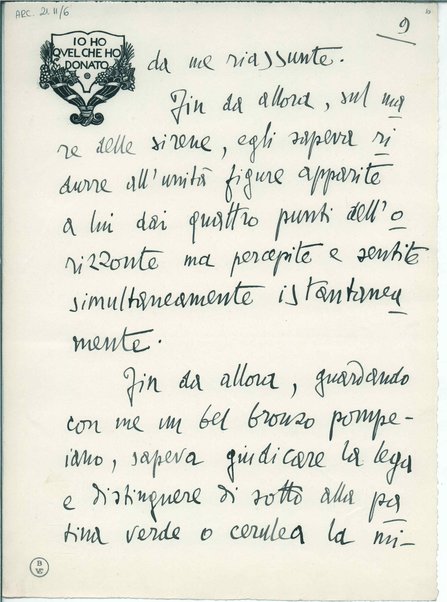 ARC. 21. II/6
9
IO HO
QVEL CHE HO
DONATO
da me riassunte.
Fin da allora, sul ma
re delle sirene, egli sapeva ri
durre all'unità figure apparite
a lui dai quattro punti dell'o
rizzonte ma percepite e sentite
simultaneamente istantanea
mente.
Fin da allora, guardando
con me un bel bronzo pompe-
iano, sapeva giudicare la lega
e distinguere di sotto alla pa
tina verde o cerulea la mi-